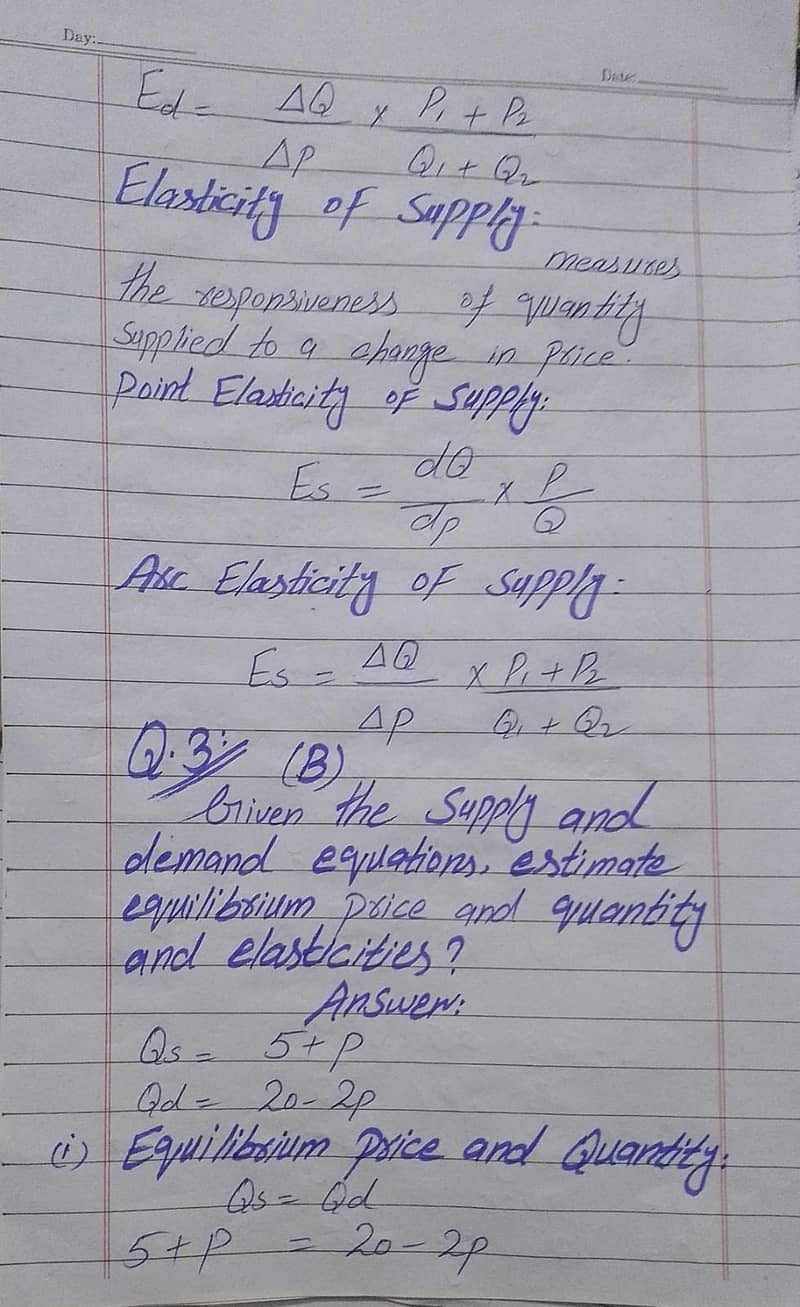 Day:
Date:
Ed = ΔQ/ΔP x P₁ + P₂/Q₁ + Q₂
Elasticity of Supply:
measures
the responsiveness of quantity
Supplied to a change in Price.
Point Elasticity of Supply:
Es = dQ/dp x P/Q
Arc Elasticity of Supply:
Es = ΔQ/ΔP x P₁ + P₂/Q₁ + Q₂
Q.3: (B)
Given the Supply and
demand equations, estimate
equilibrium price and quantity
and elasticities?
Answer:
Qs = 5 + P
Qd = 20 - 2P
(i) Equilibrium Price and Quantity:
Qs = Qd
5 + P = 20 - 2P